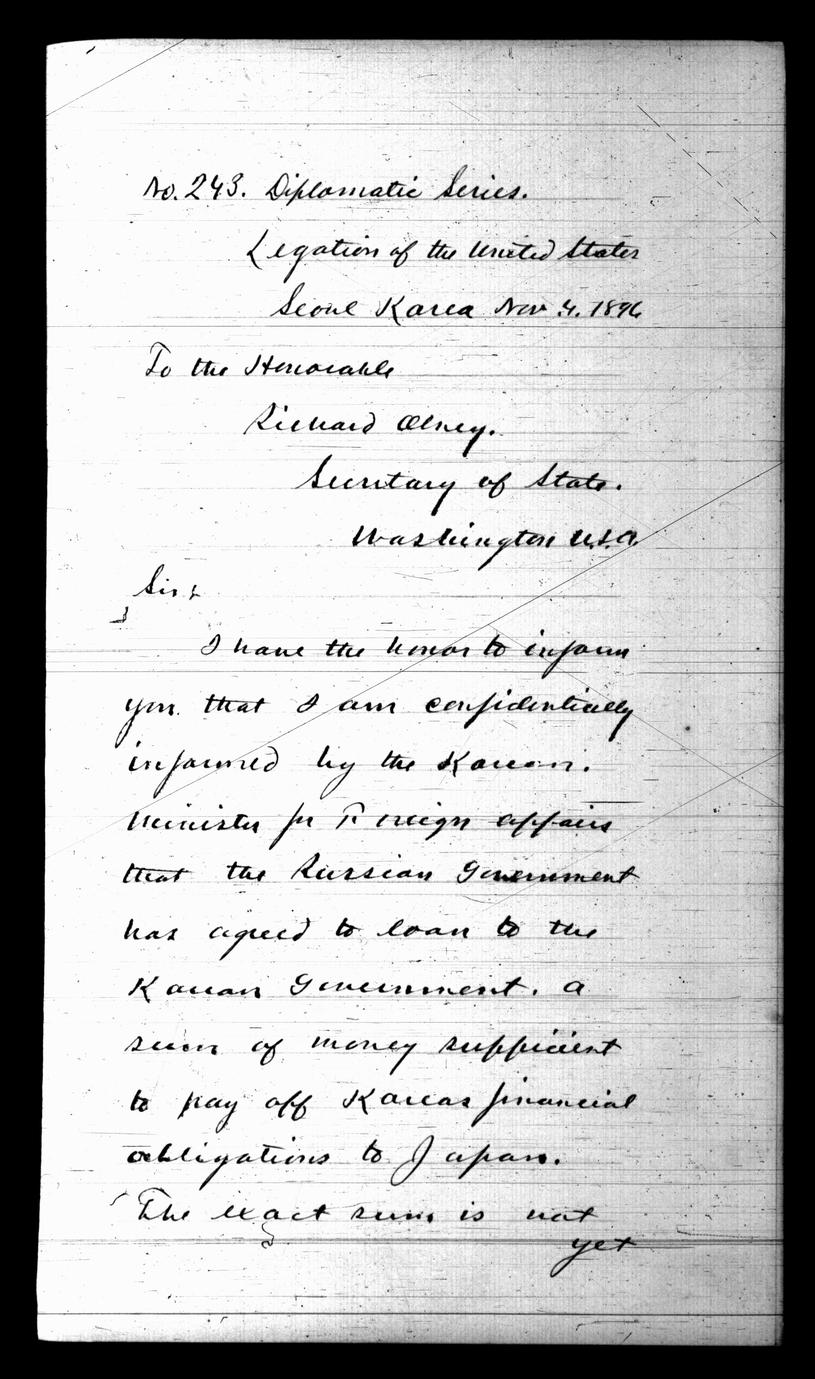 No. 243. Diplomatic Series.
Legation of the United States
Seoul Korea Nov 4. 1896
To the Honorable
Richard Olney.
Secretary of State.
Washington U.S.A.
Sir:
I have the honor to inform
you that I am confidentially
informed by the Korean.
Minister for Foreign affairs
that the Russian Government
has agreed to loan to the
Korean Government. a
sum of money sufficient
to pay off Koreas financial
obligations to Japan.
The exact sum is not
yet